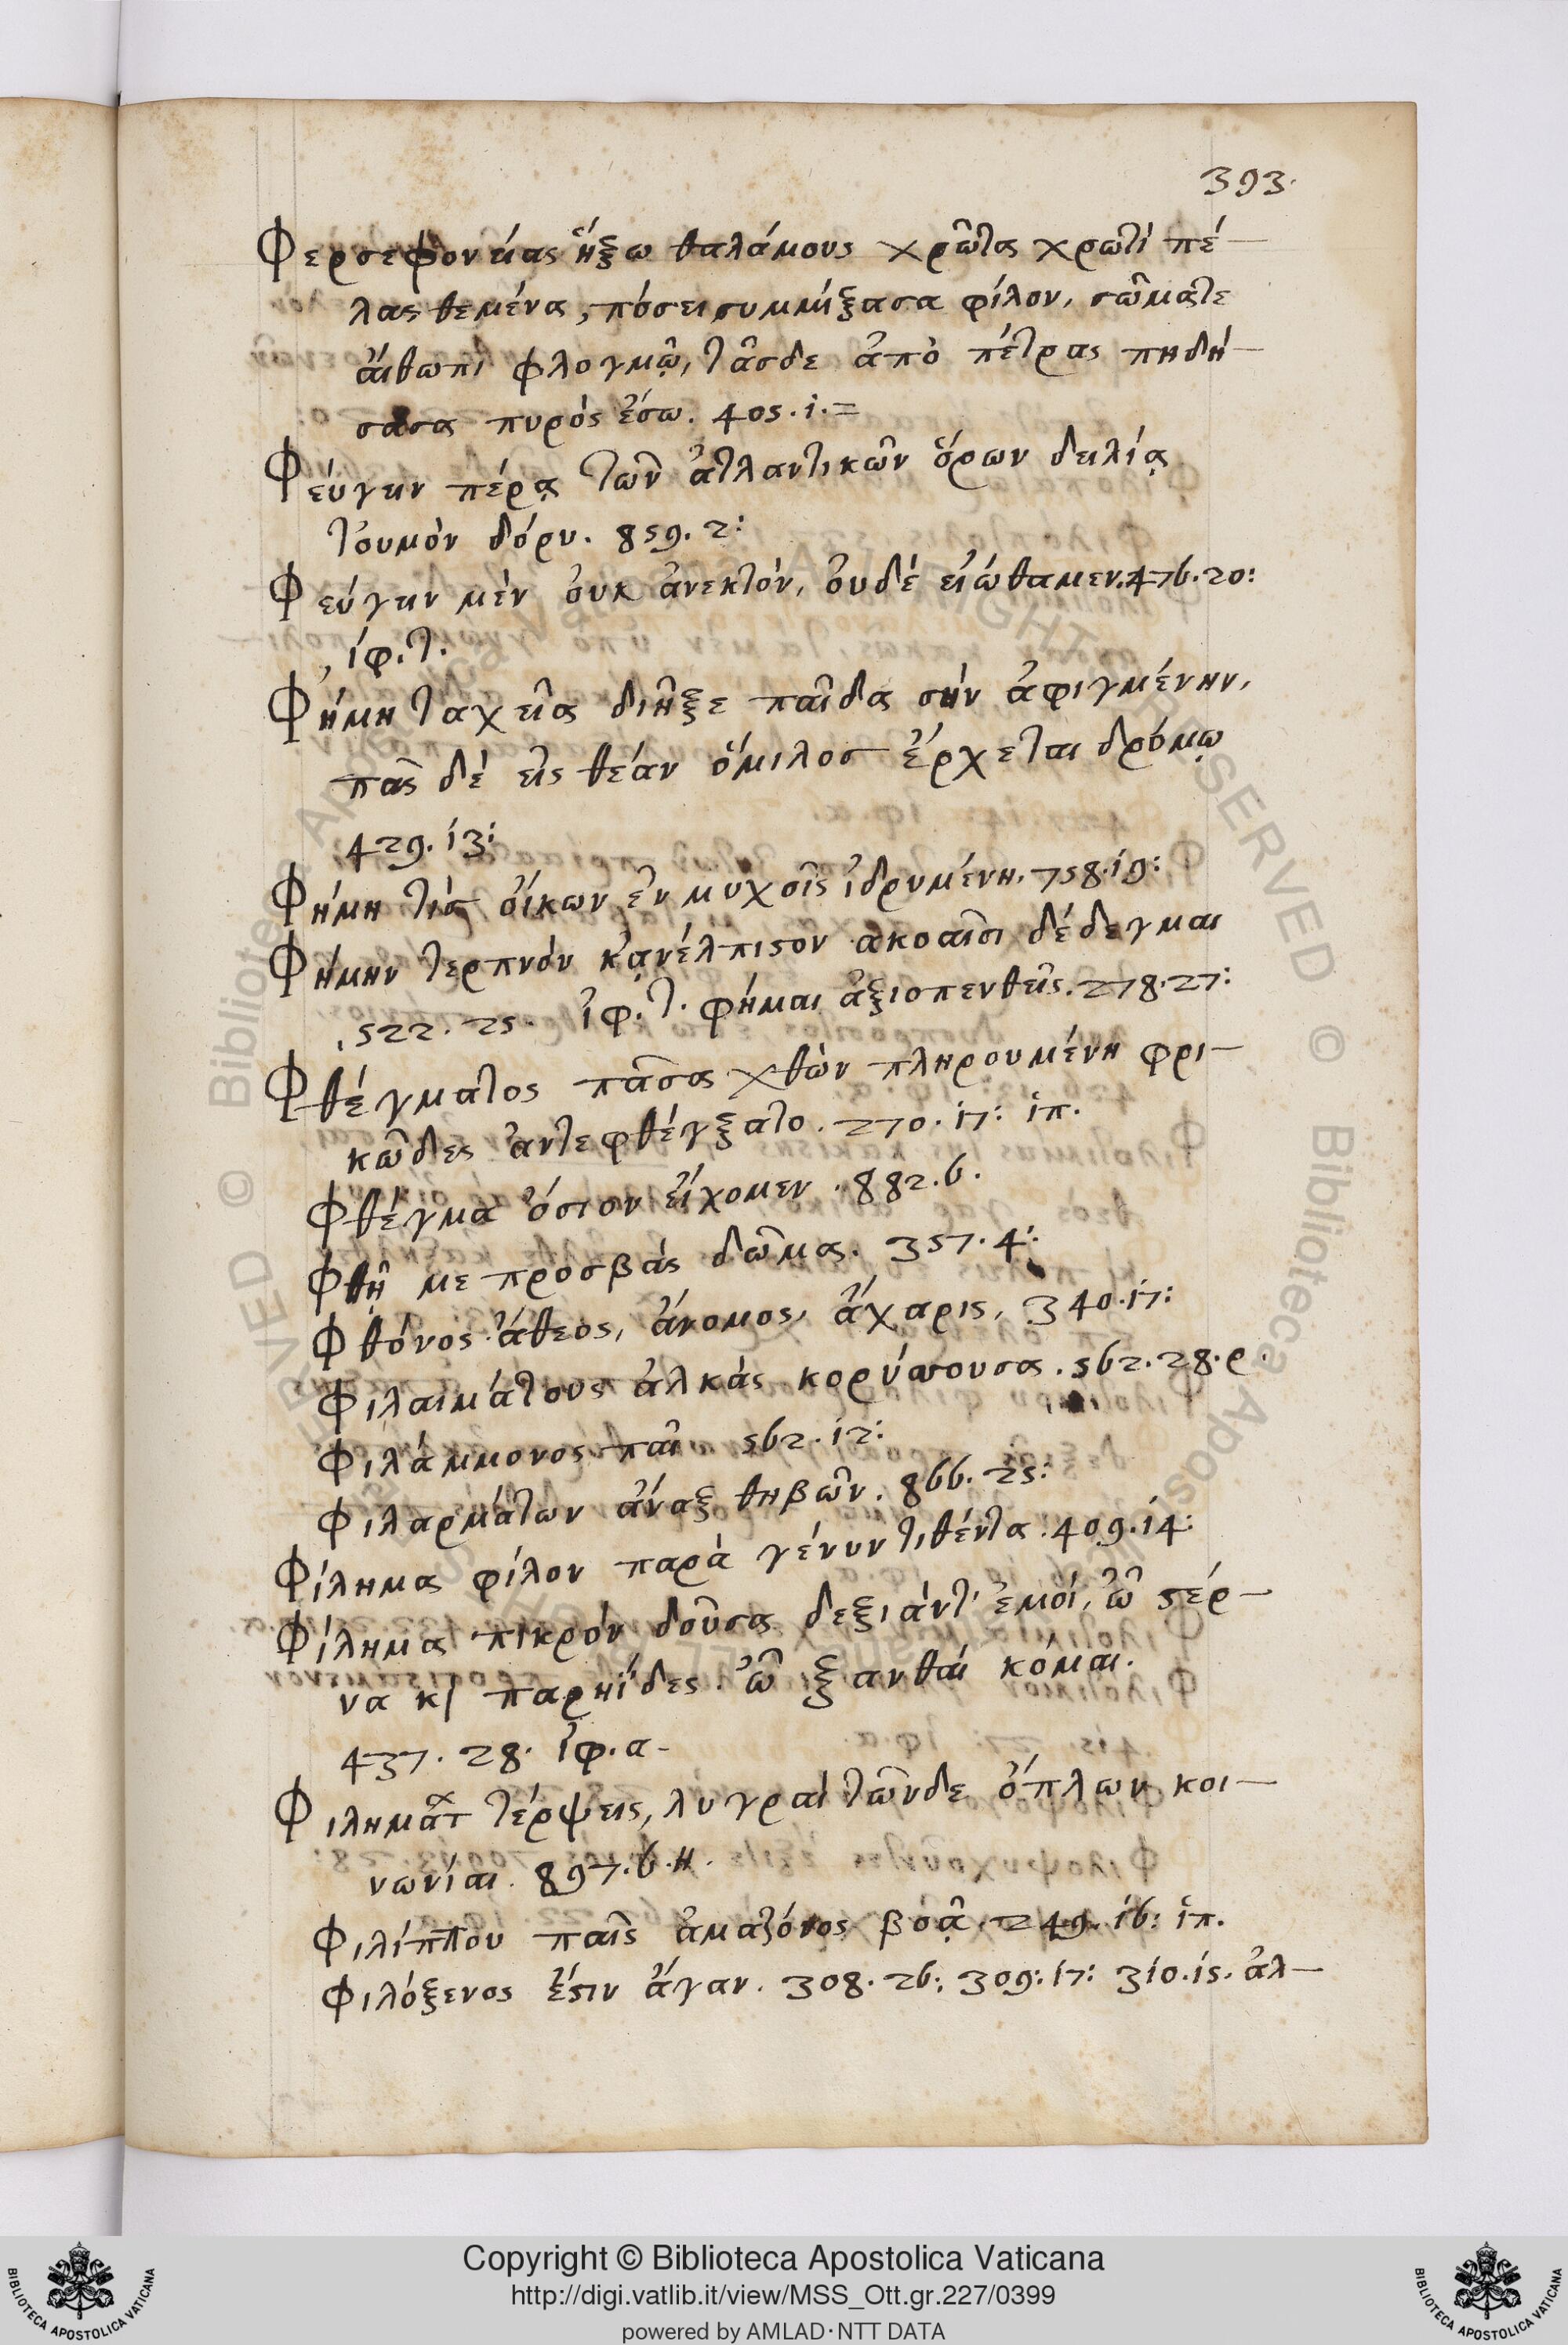 393.
Φερσεφονείας ἥξω θαλάμους χρῶτα χρωτὶ πέ-
λας θεμένα, πόσει συμμίξασα φίλον, σῶμάτε
αἴθωπι φλογμῷ, τᾶσδε ἀπὸ πέτρας πηδή-
σασα πυρὸς ἔσω. 405.1.=
Φεύγειν πέρα τῶν ἀτλαντικῶν ὅρων δειλίᾳ
τοὐμὸν δόρυ. 859.2:
Φεύγειν μὲν οὐκ ἀνεκτὸν, οὐδὲ εἰώθαμεν. 476.20:
ἰφ.τ.
Φήμη ταχεῖα διῆξε παῖδα σὴν ἀφιγμένην,
πᾶς δὲ εἰς θέαν ὅμιλος ἔρχεται δρόμῳ
429.13:
Φήμη τὶς οἴκων ἐν μυχοῖς ἱδρυμένη. 758.19:
Φήμην τερπνὸν κἀνέλπιστον ἀκοαῖσι δέδεγμαι
522.25. ἰφ.τ. φῆμαι ἀξιοπενθεῖς. 278.27:
Φθέγματος πᾶσα χθὼν πληρουμένη φρι-
κῶδες ἀντεφθέγξατο. 270.17: ἱπ.
Φθέγμα ὅσιον εἴχομεν. 882.6.
Φθῆ με προσβὰς δῶμα. 357.4:
Φθόνος ἄθεος, ἄνομος, ἄχαρις, 340.17:
Φιλαιμάτους ἀλκὰς κορύσσουσα. 562.28.ρ.
Φιλάμμονος παῖ 562.12:
Φιλαρμάτων ἄναξ θηβῶν. 866.25:
Φίλημα φίλον παρὰ γένυν τιθέντα. 409.14:
Φίλημα πικρὸν δοῦσα δεξιάντ' ἐμοί, ὦ στέρ-
να κ παρηΐδες. ὦ ξανθαὶ κόμαι.
437.28. ἰφ.α-
Φιλημάτ τέρψεις, λυγραὶ τῶνδε ὅπλων κοι-
νωνίαι. 897.6.Η.
Φιλίππου παῖς ἀμαζόνος βοᾷ. 249.16: ἱπ.
Φιλόξενος ἔστιν ἄγαν. 308.26: 309:17: 310.15. ἀλ-
Copyright © Biblioteca Apostolica Vaticana
http://digi.vatlib.it/view/MSS_Ott.gr.227/0399
powered by AMLAD·NTT DATA
BIBLIOTECA APOSTOLICA VATICANA
BIBLIOTECA APOSTOLICA VATICANA